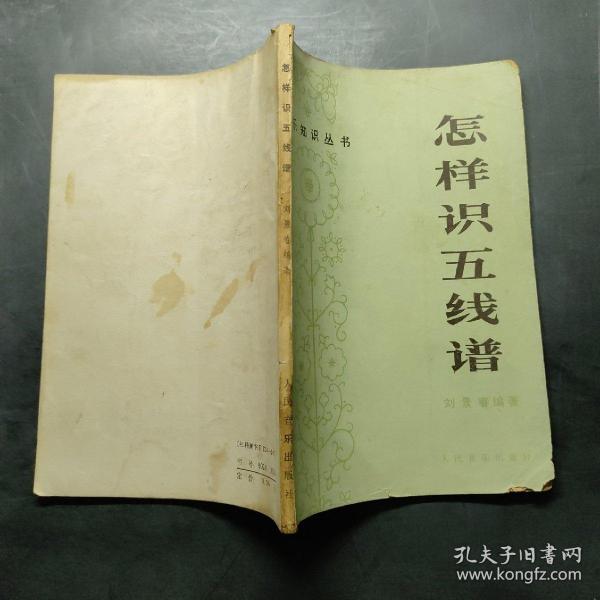 知识丛书
怎样识五线谱
刘景春编著
人民音乐出版社
怎样识五线谱
刘景春编著
人民音乐出版社
书号
定价
孔夫子旧书网
www.kongfz.com